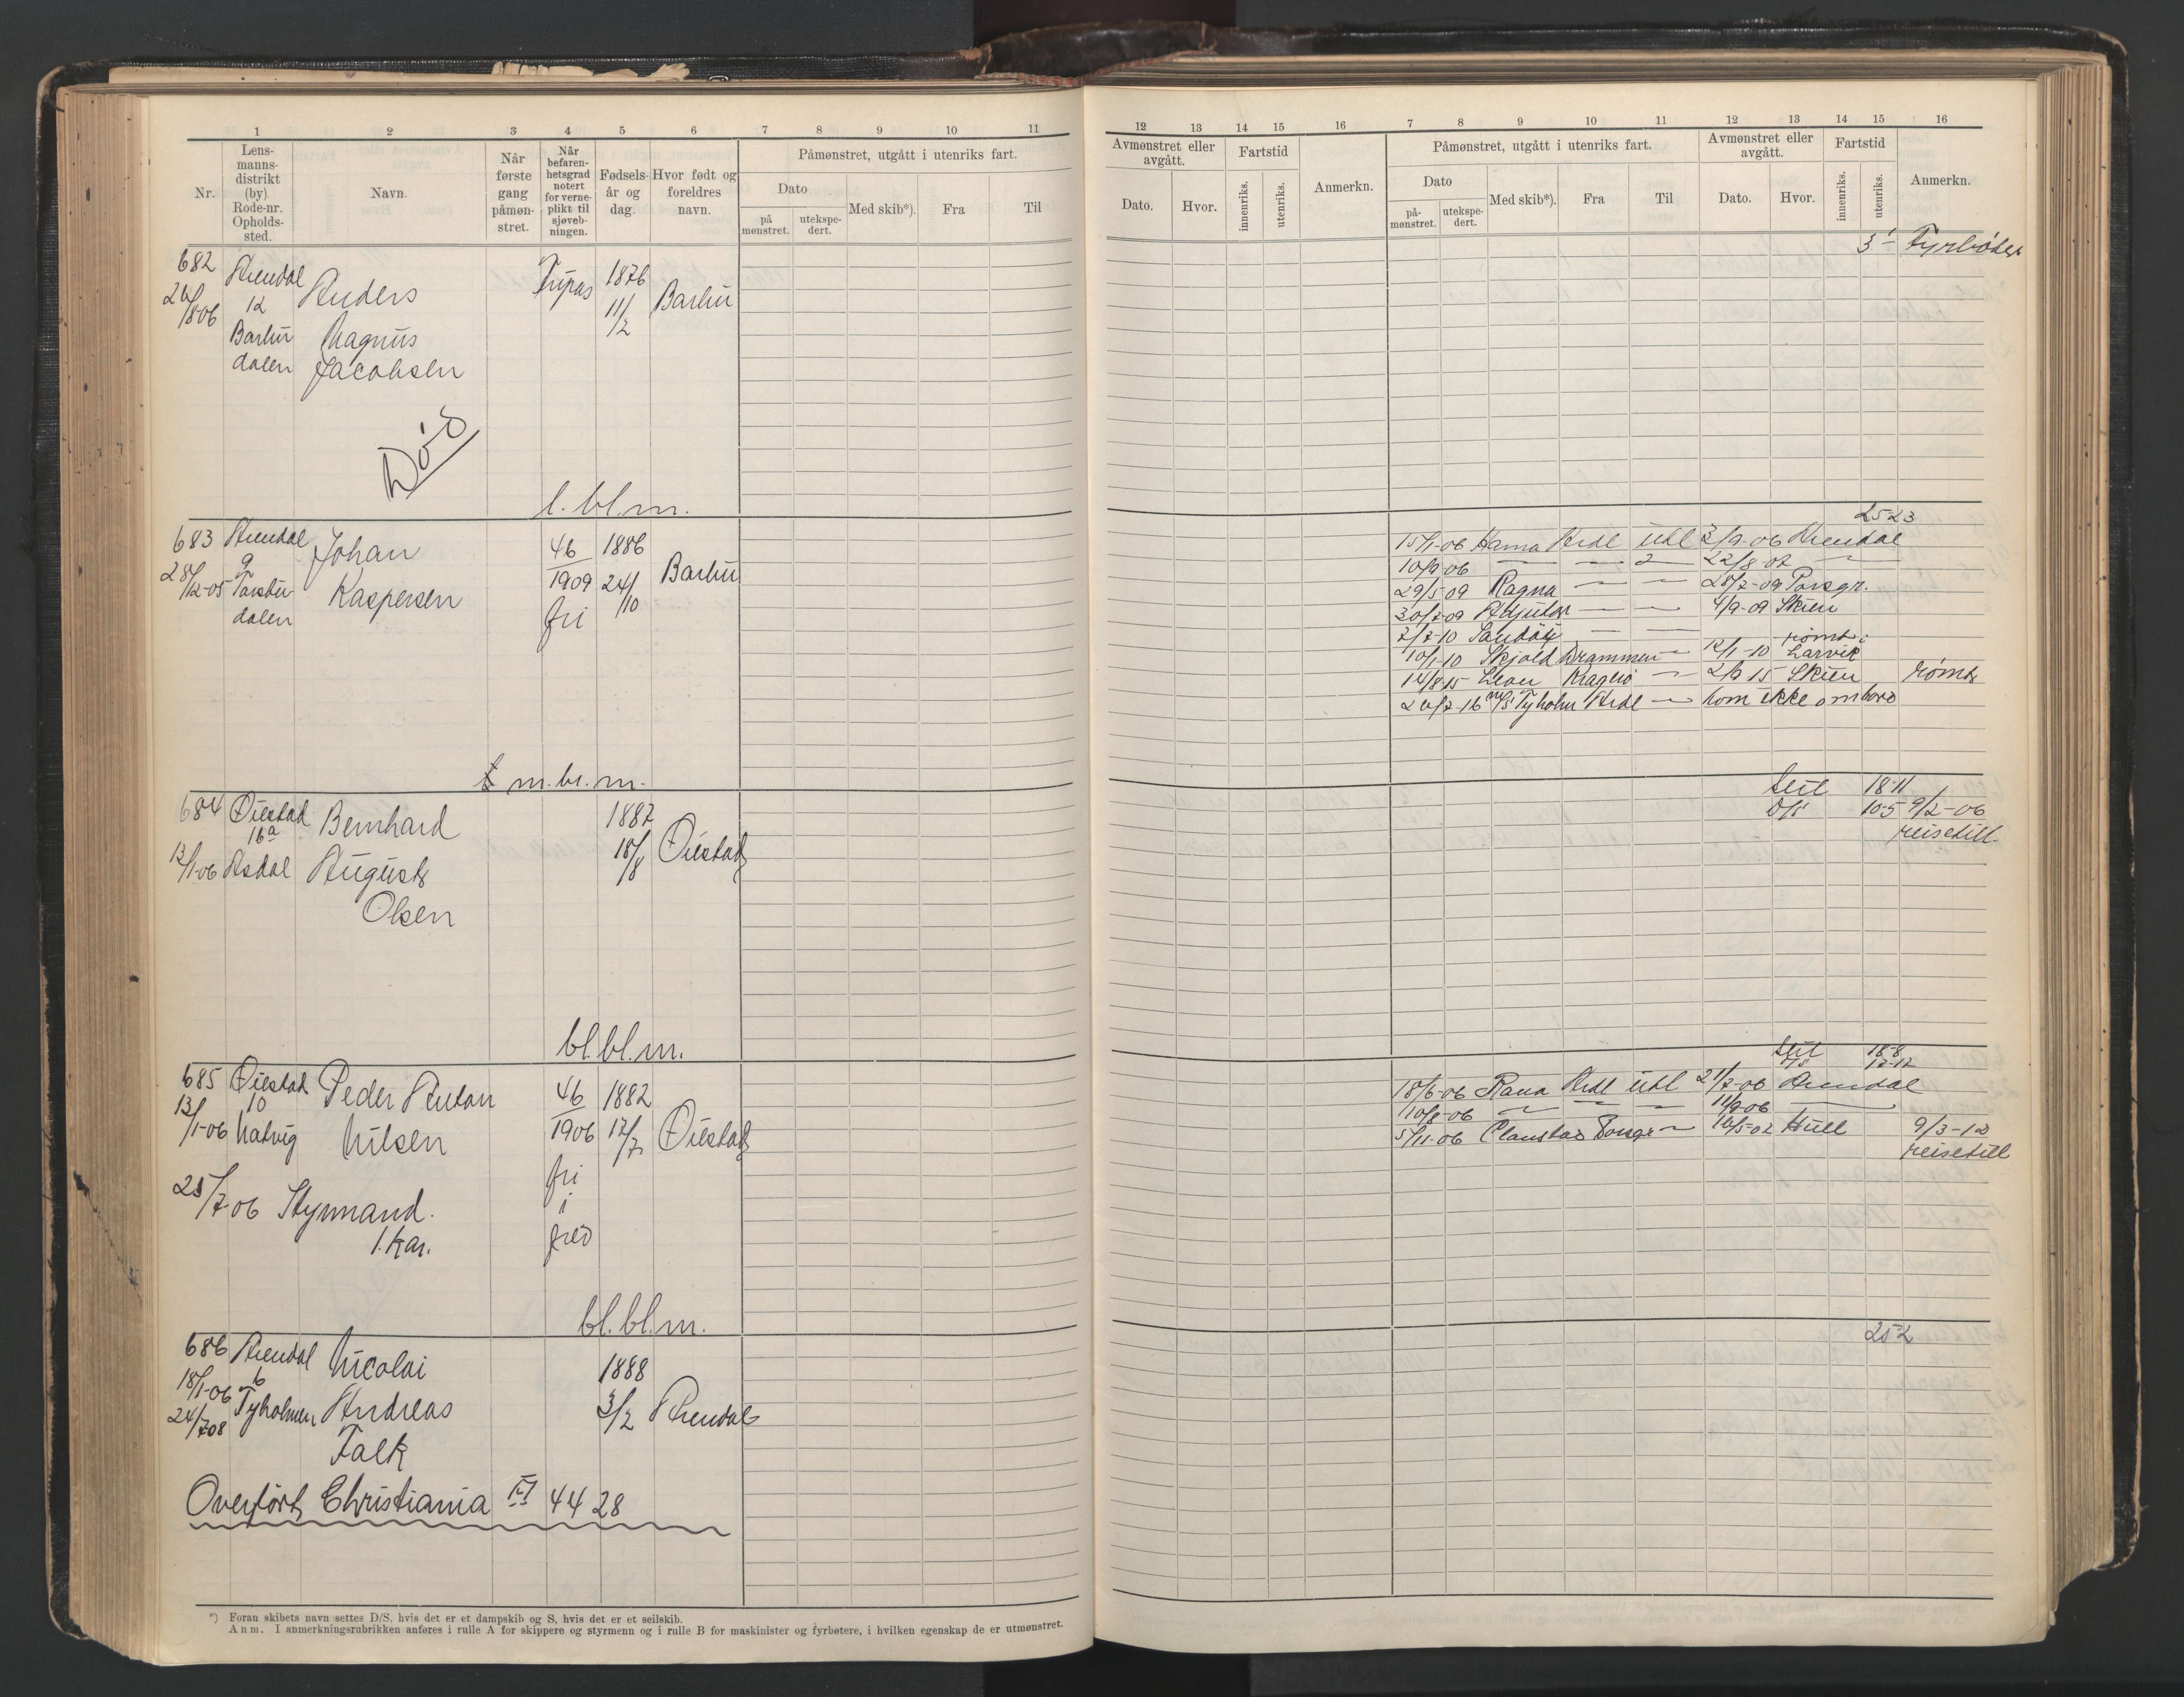 1 2 3 4 5 6 7 8 9 10 11
Nr.
Lens-
manns-
distrikt
(by).
Rode-nr.
Opholds-
sted.
Navn.
Når
første
gang
påmøn-
stret.
Når
befaren-
hetsgrad
notert
for verne-
plikt til
sjøveb-
ningen.
Fødsels-
år og
dag.
Hvor født og
foreldres
navn.
Påmønstret, utgått i utenriks fart.
Dato
på
mønstret.
utekspe-
dert.
Med skib*).
Fra
Til
682 Arendal Anders Tripas 1876 Barbu
26/8-06 12 11/2
Barbu Magnus
dalen Jacobsen
Død
l. bl. m.
683 Arendal Johan 46 1886 Barbu
28/12-05 9 1909 24/10
Kaspersen fri
dalen
m. br. m.
684 Øiestad Bernhard 1887
16a 18/8 Øiestad
12/1-06 Asdal August
Olsen
bl. bl. m.
685 Øiestad Peder Anton 46 1882
13/1-06 10 1906 17/7 Øiestad
Natvig Nilsen fri
i
25/7-06 Styrmand. fred
1. kar.
bl. bl. m.
686 Arendal Nicolai 1888
18/1-06 6 3/2 Arendal
24/7 08 Tyholmen Andreas
Falk
Overført Christiania 4428
*) Foran skibets navn settes D/S, hvis det er et dampskib og S, hvis det er et seilskib.
Anm. I anmerkningsrubrikken anføres i rulle A for skippere og styrmenn og i rulle B for maskinister og fyrbøtere, i hvilken egenskap de er utmønstret.
12 13 14 15 16 7 8 9 10 11 12 13 14 15 16
Avmønstret eller
avgått.
Dato.
Hvor.
Fartstid
innenriks.
utenriks.
Anmerkn.
Påmønstret, utgått i utenriks fart.
Dato
på-
mønstret.
utekspe-
dert.
Med skib*).
Fra
Til
Avmønstret eller
avgått.
Dato.
Hvor.
Fartstid
innenriks.
utenriks.
Anmerkn.
3 - Fyrbøder
25-23
15/1-06 Hama Ardl utl 3/9-06 Arendal
10/9-06 — — 2 22/8-07 —
29/5-09 Ragna — — 28/7-09 Porsgr.
30/7-09 Adjutor — — 4/9-09 Skien
2/7-10 — — rømt i
10/1-10 Skjold Drammen — 12/1-10 Larvik
14/8 15 Kragerø — Skien rømt
20/7-16 m/s Tyholm Ardl — kom ikke ombord
Seil 18-11
D/S 10-5 9/2-06
reisetill.
Seil 18-8
D/S 17-12
18/6-06 Rana Ardl utl 21/7-06 Arendal
10/8-06 — — — 11/9-06 —
5/11-06 — 16/5-07 Hull 9/3-12
reisetill
25-2